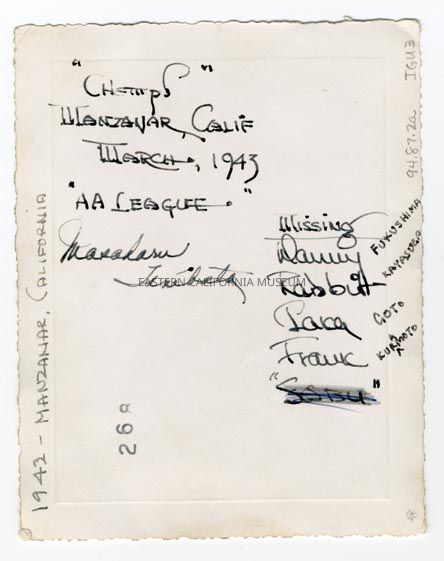 "Champs"
Manzanar, Calif
March, 1943
"AA League."
Masakazu
Missing
Danny FUKUSHIMA
Rabbit KATASURA
Taka GOTO
Frank KURAMOTO
EASTERN CALIFORNIA MUSEUM
268
1942 - MANZANAR, CALIFORNIA
94.87.2a IGU3